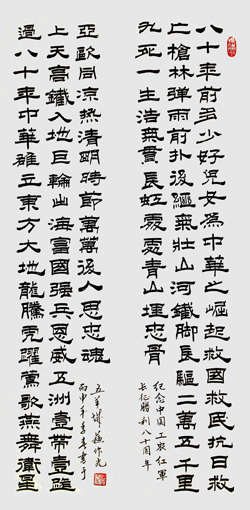 八十年前多少好兒女為中華之崛起救國救民抗日救
亡槍林弹雨前扑後繼氣壯山河鐵脚長驅二萬五千里
九死一生浩氣貫長虹處處青山埋忠骨
纪念中国工农红軍
长征勝利八十周年
過八十年中華雄立東方大地龍騰虎躍鶯歌燕舞衛星
上天高鐵入地巨輪出海富國强兵恩威五洲壹带壹路
亞歐同凉热清明時節萬萬後人思忠魂
五羊
丙申年